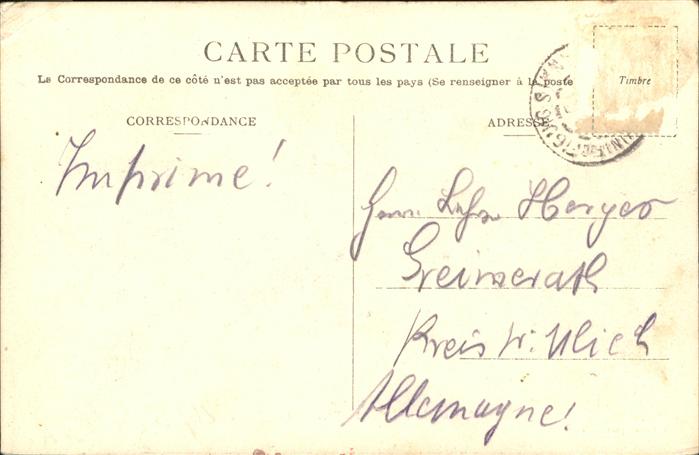 CARTE POSTALE
La Correspondance de ce côté n'est pas acceptée par tous les pays (Se renseigner à la poste
Timbre
CORRESPONDANCE
ADRESSE
Imprime!
Herrn Lehrer Herges
Greimerath
Kreis Wittlich
Allemagne!